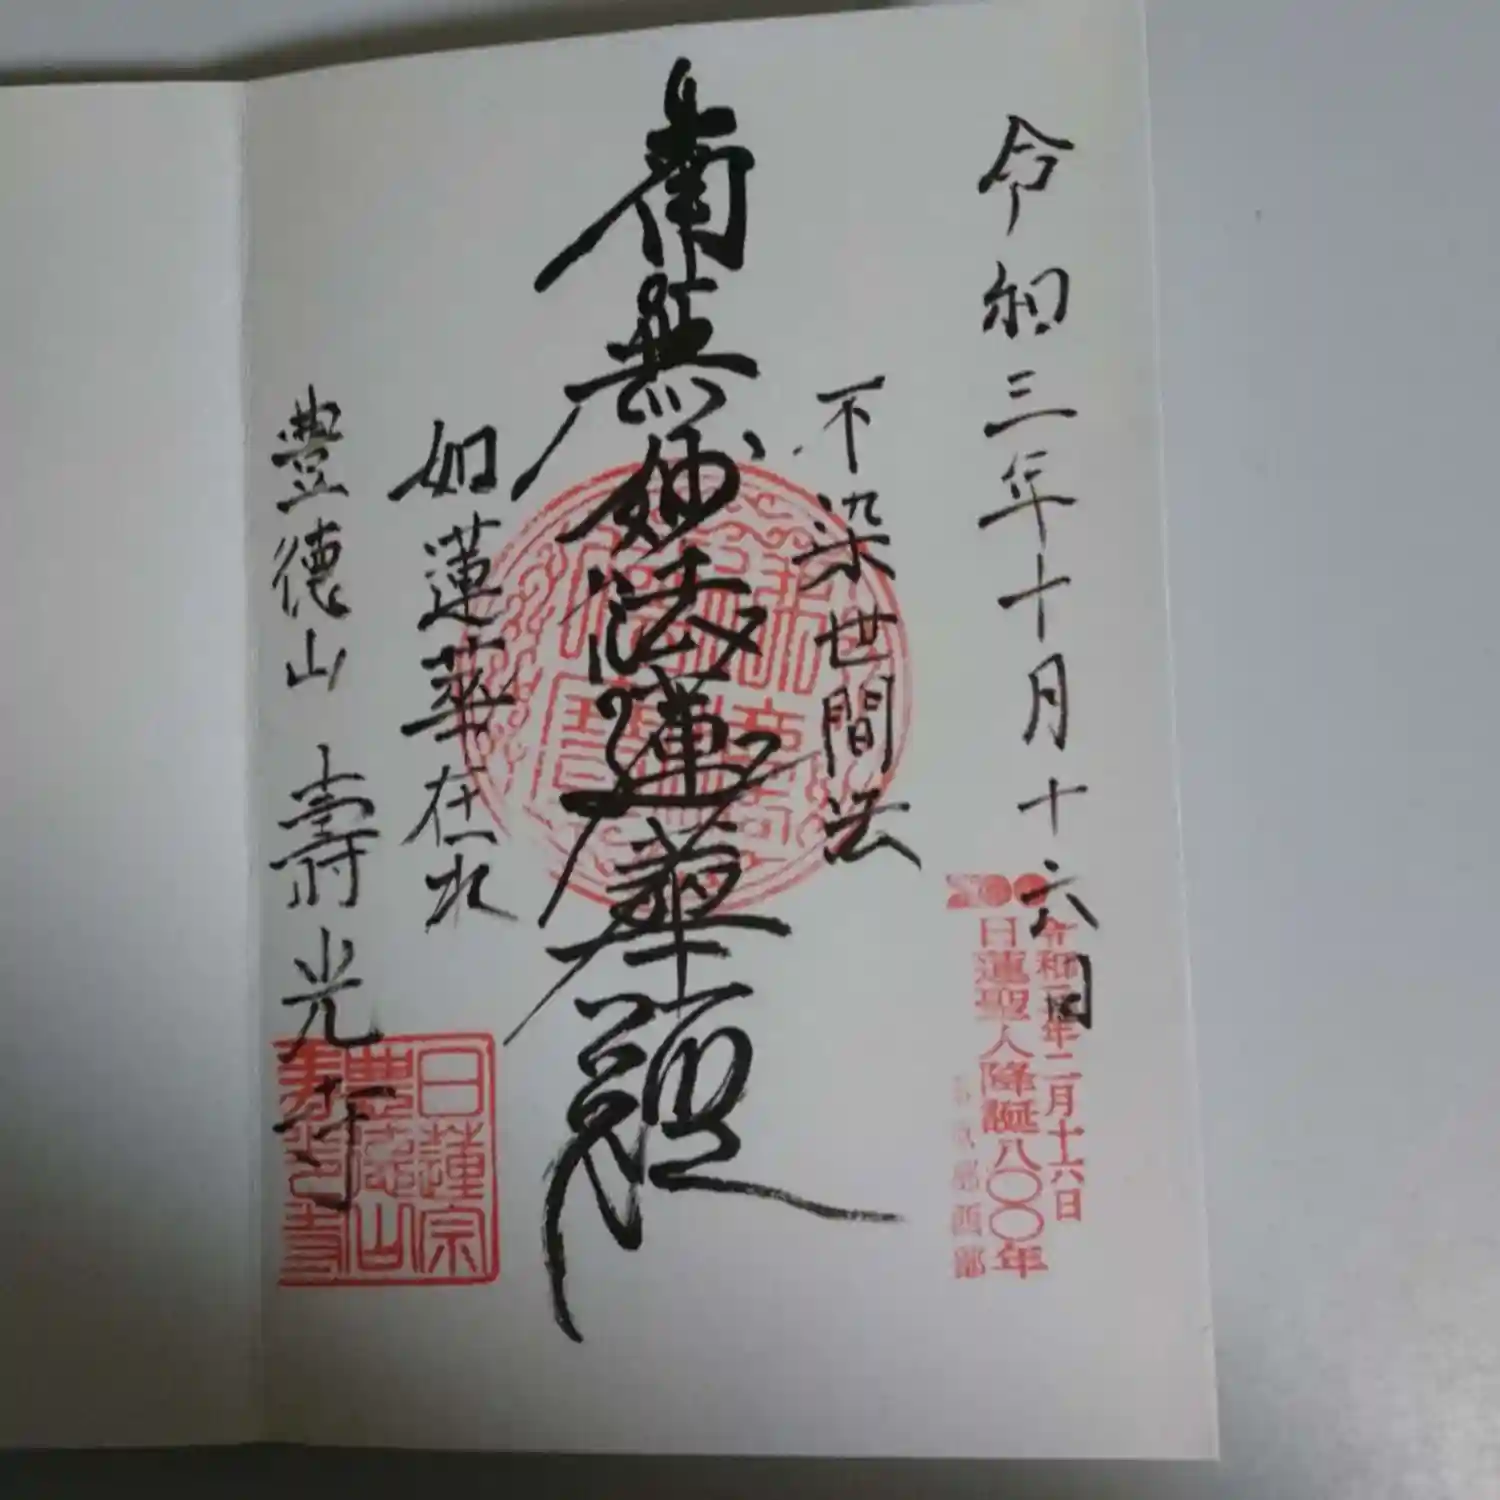 令和三年十月十六日
令和三年二月十六日
日蓮聖人降誕八〇〇年
不染世間法
南無妙法蓮華経
如蓮華在水
豊徳山 壽光寺
日蓮宗
豊徳山
壽光寺